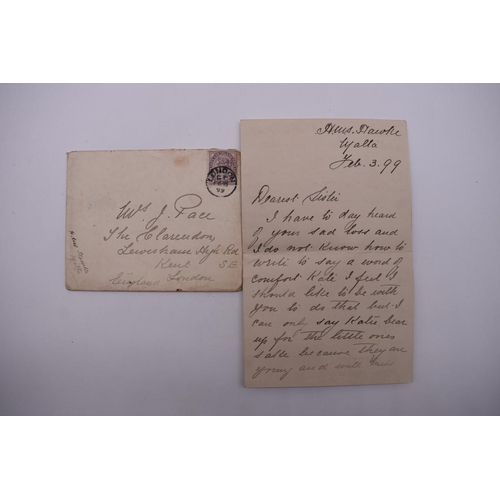 LONDON
99
Mrs J. Pace
The Clarendon
Lewisham High Rd
Kent S.E
England London
H.M.S. Hawke
Malta
Feb. 3. 99
Dearest Sister
I have to day heard
of your sad loss and
I do not know how to
write to say a word of
comfort Kate I feel I
should like to be with
you to do that but I
can only say Katie bear
up for the little ones
sake because they are
young and will